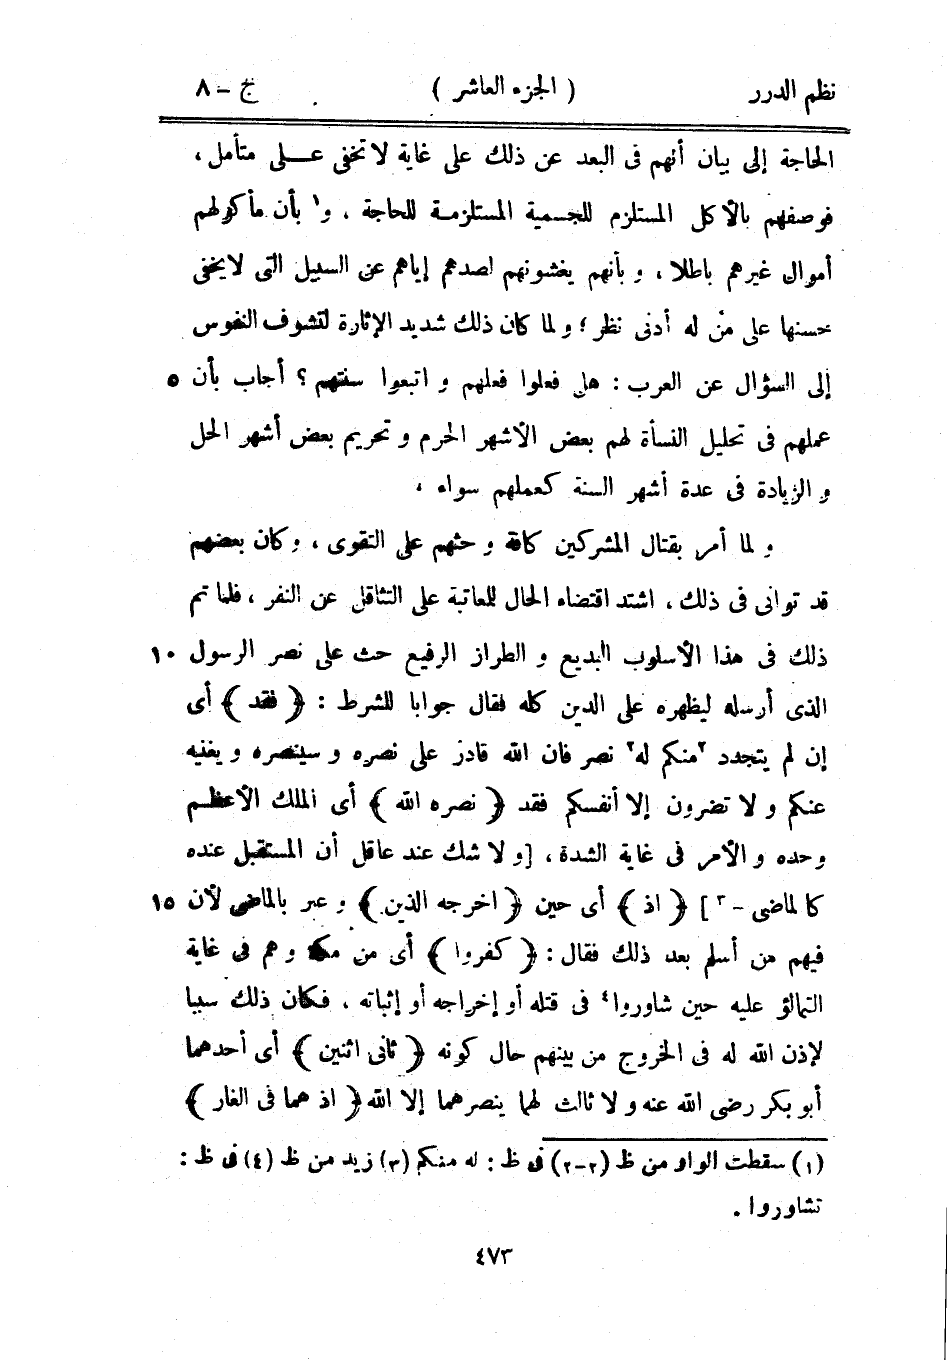 نظم الدرر ( الجزء العاشر ) ج – ٨
الحاجة إلى بيان أنهم فى البعد عن ذلك على غاية لا تخفى عــلى متأمل ،
فوصفهم بالأكل المستلزم للجسمية المستلزمة للحاجة ، و١ بأن مأكولهم
أموال غيرهم باطلا ، و بأنهم يغشونهم لصدهم إياهم عن السبيل التى لا يخفى
حسنها على من له أدنى نظر ؛ و لما كان ذلك شديد الإثارة لتشوف النفوس
إلى السؤال عن العرب : هل فعلوا فعلهم و اتبعوا سنتهم ؟ أجاب بأن ٥
عملهم فى تحليل النسأة لهم بعض الأشهر الحرم و تحريم بعض أشهر الحل
و الزيادة فى عدة أشهر السنة كعملهم سواء ،
و لما أمر بقتال المشركين كافة و حثهم على التقوى ، و كان بعضهم
قد توانى فى ذلك ، اشتد اقتضاء الحال للمعاتبة على التثاقل عن النفر ، فلما تم
ذلك فى هذا الأسلوب البديع و الطراز الرفيع حث على نصر الرسول ١٠
الذى أرسله ليظهره على الدين كله فقال جوابا للشرط : ﴿ فقد ﴾ أى
إن لم يتجدد ٢منكم له٢ نصر فان الله قادر على نصره و سينصره و يغنيه
عنكم و لا تضرون إلا أنفسكم فقد ﴿ نصره الله ﴾ أى الملك الأعظم
وحده و الأمر فى غاية الشدة ، [ و لا شك عند عاقل أن المستقبل عنده
كالماضى – ٣ ] ﴿ اذ ﴾ أى حين ﴿ اخرجه الذين ﴾ و عبر بالماضى لأن ١٥
فيهم من أسلم بعد ذلك فقال : ﴿ كفروا ﴾ أى من مكة و هم فى غاية
التمالؤ عليه حين شاوروا٤ فى قتله أو إخراجه أو إثباته ، فكان ذلك سببا
لإذن الله له فى الخروج من بينهم حال كونه ﴿ ثانى اثنين ﴾ أى أحدهما
أبو بكر رضى الله عنه و لا ثالث لهما ينصرهما إلا الله ﴿ اذ هما فى الغار ﴾
(١) سقطت الواو من ظ (٢-٢) فى ظ : له منكم (٣) زيد من ظ (٤) فى ظ :
تشاوروا .
٤٧٣